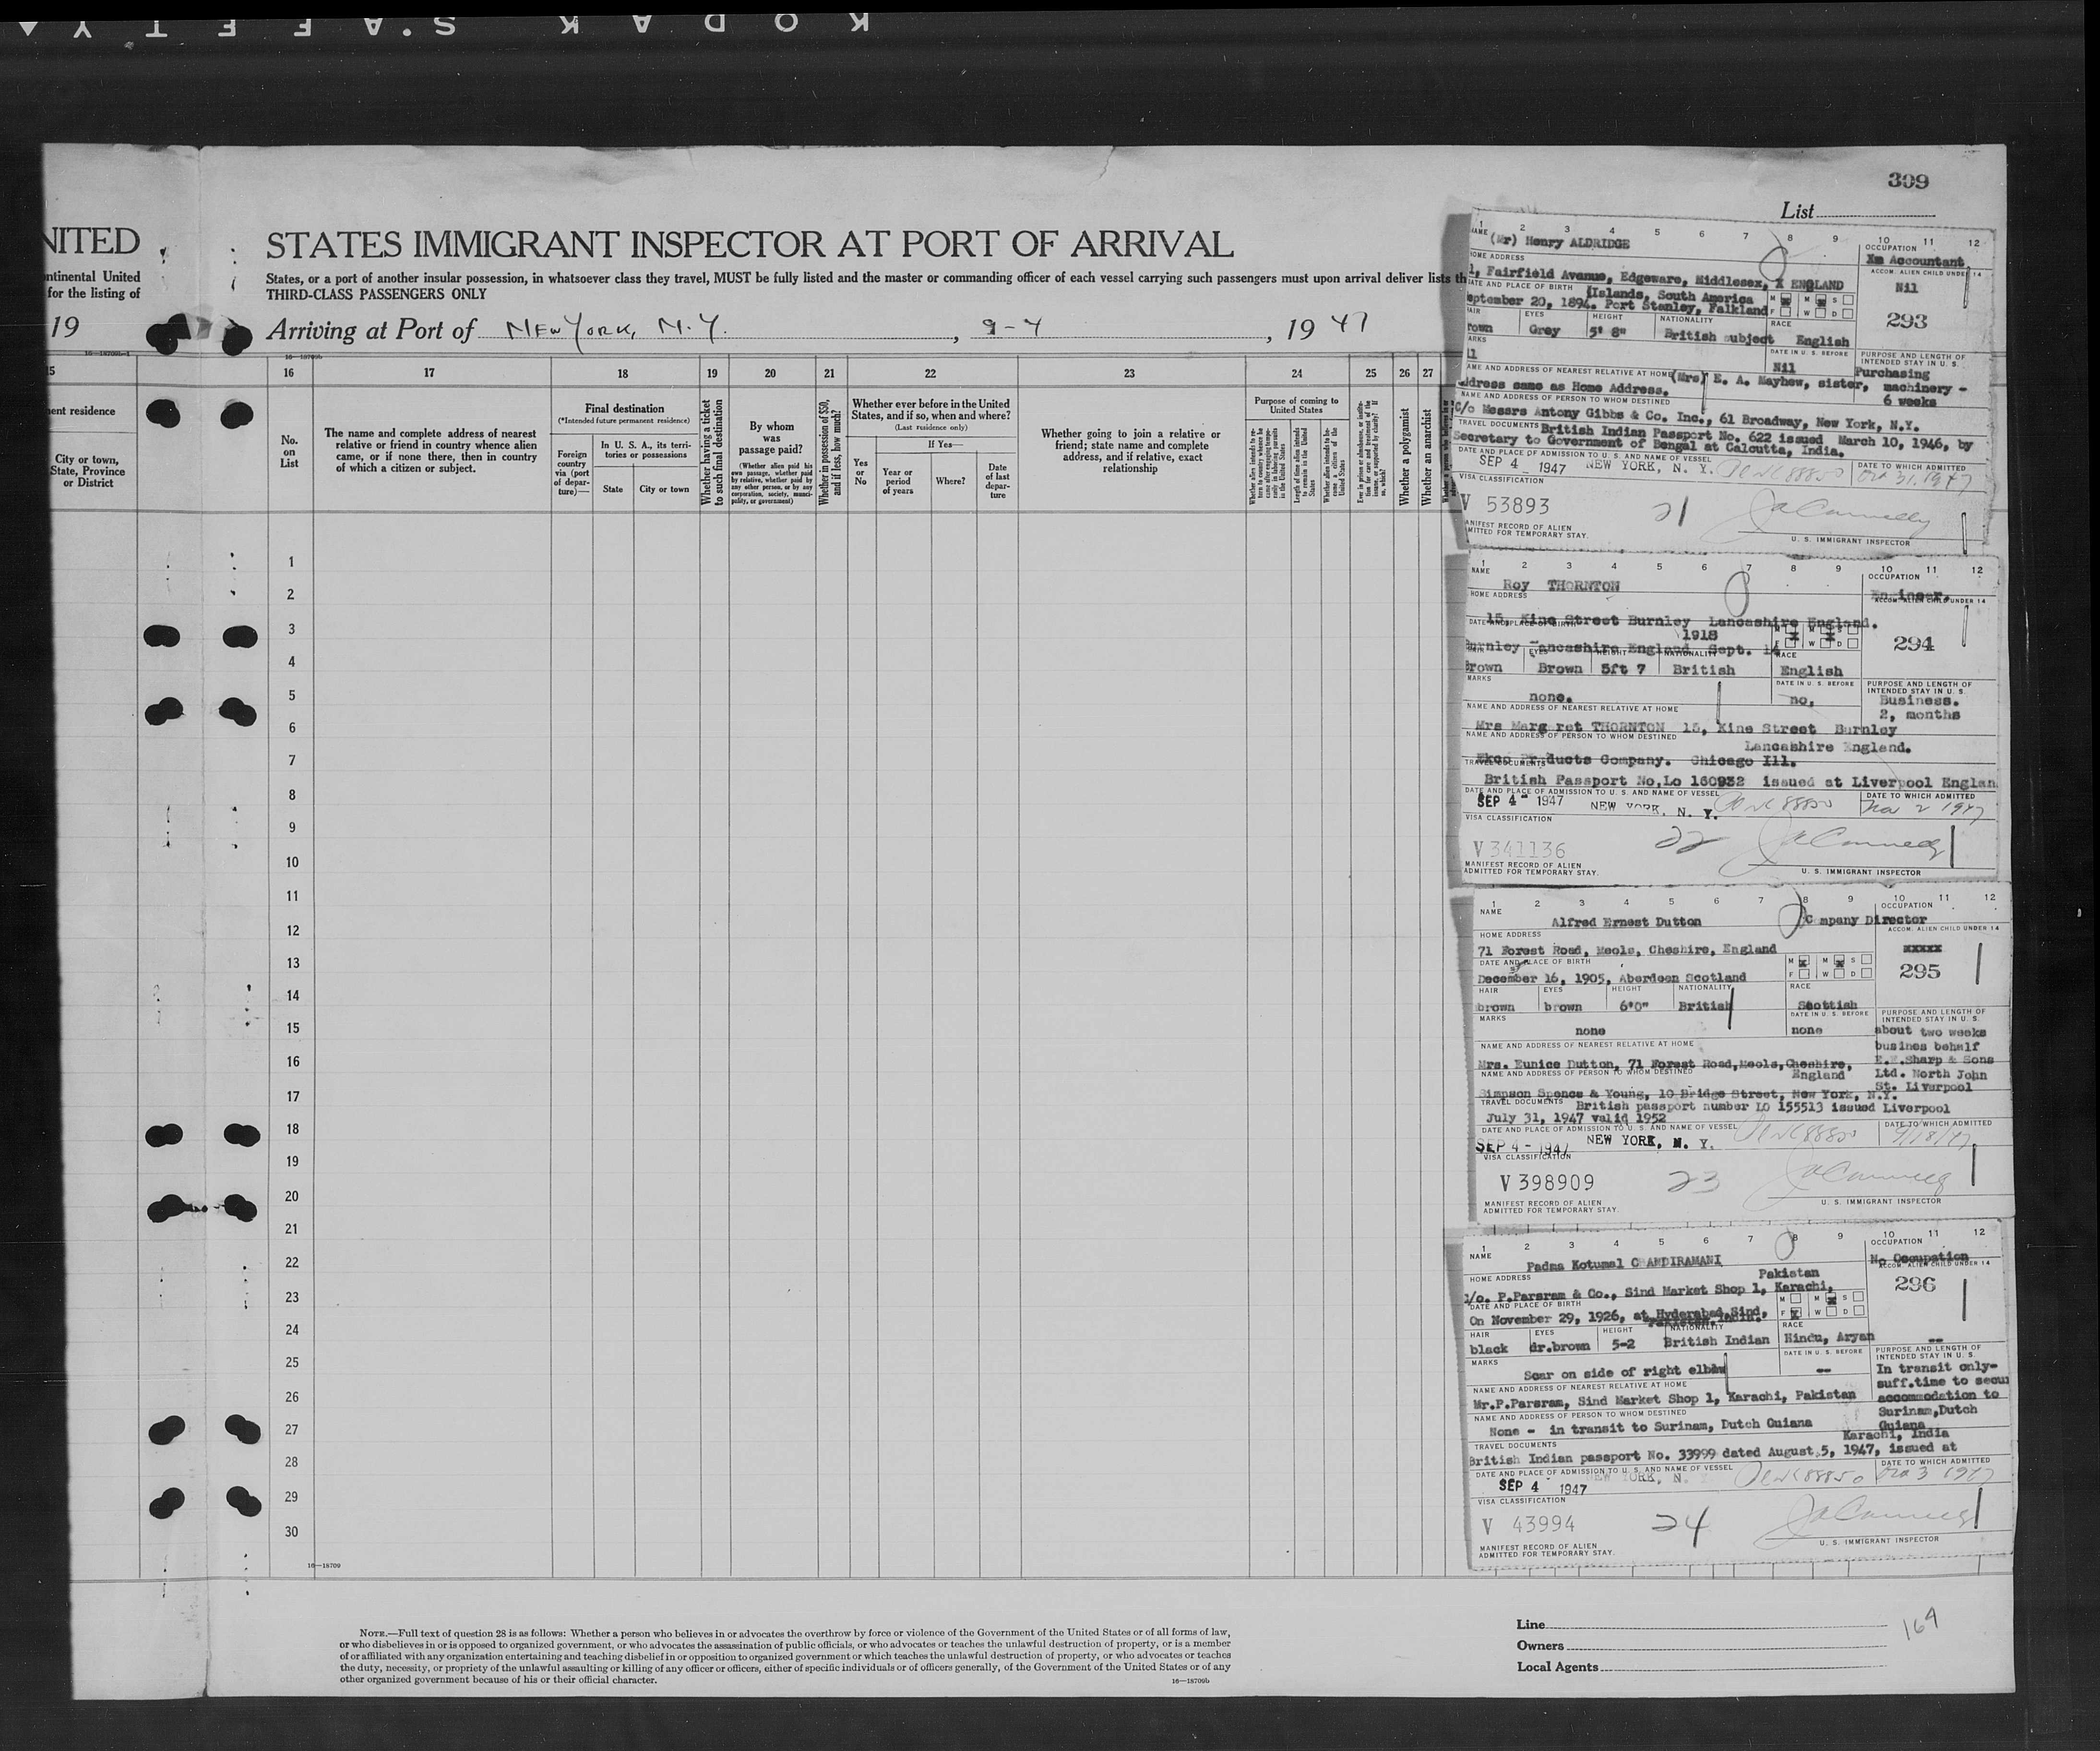 KODAK S.A.F.E.T.Y
309
List
NITED
ntinental United
for the listing of
19
STATES IMMIGRANT INSPECTOR AT PORT OF ARRIVAL
States, or a port of another insular possession, in whatsoever class they travel, MUST be fully listed and the master or commanding officer of each vessel carrying such passengers must upon arrival deliver lists th
THIRD-CLASS PASSENGERS ONLY
Arriving at Port of NEW YORK, N.Y., 9-4, 1947
16—18709b-1
16—18709b
15
16 17 18 19 20 21 22 23 24 25 26 27
ent residence
City or town,
State, Province
or District
No.
on
List
The name and complete address of nearest
relative or friend in country whence alien
came, or if none there, then in country
of which a citizen or subject.
Final destination
(*Intended future permanent residence)
Foreign
country
via (port
of depar-
ture)—
In U. S. A., its terri-
tories or possessions
State
City or town
Whether having a ticket
to such final destination
By whom
was
passage paid?
(Whether alien paid his
own passage, whether paid
by relative, whether paid by
any other person, or by any
corporation, society, munici-
pality, or government)
Whether in possession of $50,
and if less, how much?
Whether ever before in the United
States, and if so, when and where?
(Last residence only)
Yes
or
No
If Yes—
Year or
period
of years
Where?
Date
of last
depar-
ture
Whether going to join a relative or
friend; state name and complete
address, and if relative, exact
relationship
Purpose of coming to
United States
Length of time alien intends
to remain in the United
States
Whether alien intends to be-
come a citizen of the
United States
Whether a polygamist
Whether an anarchist
1
2
3
4
5
6
7
8
9
10
11
12
13
14
15
16
17
18
19
20
21
22
23
24
25
26
27
28
29
30
16—18709
1 2 3 4 5 6 7 8 9 10 11 12
NAME
(Mr) Henry ALDRIDGE
OCCUPATION
Accountant
HOME ADDRESS
1, Fairfield Avenue, Edgeware, Middlesex, ENGLAND
ACCOM. ALIEN CHILD UNDER 14
Nil
DATE AND PLACE OF BIRTH
Islands, South America
September 20, 1894, Port Stanley, Falkland
M M S
F W D
293
HAIR EYES HEIGHT NATIONALITY RACE
rown Grey 5' 8" British subject English
MARKS
DATE IN U. S. BEFORE
Nil
PURPOSE AND LENGTH OF
INTENDED STAY IN U. S.
Purchasing
machinery -
6 weeks
NAME AND ADDRESS OF NEAREST RELATIVE AT HOME
(Mrs) E. A. Mayhew, sister,
Address same as Home Address.
NAME AND ADDRESS OF PERSON TO WHOM DESTINED
C/o Messrs Antony Gibbs & Co. Inc., 61 Broadway, New York, N.Y.
TRAVEL DOCUMENTS
British Indian Passport No. 622 issued March 10, 1946, by
Secretary to Government of Bengal at Calcutta, India.
DATE AND PLACE OF ADMISSION TO U. S. AND NAME OF VESSEL
SEP 4 1947 NEW YORK, N. Y.
DATE TO WHICH ADMITTED
Oct 31, 1947
VISA CLASSIFICATION
V 53893
21
J A Connelly
MANIFEST RECORD OF ALIEN
ADMITTED FOR TEMPORARY STAY.
U. S. IMMIGRANT INSPECTOR
1 2 3 4 5 6 7 8 9 10 11 12
NAME
Roy THORNTON
OCCUPATION
Engineer.
HOME ADDRESS
ACCOM. ALIEN CHILD UNDER 14
15, Kine Street Burnley Lancashire England.
DATE AND PLACE OF BIRTH
1918
Burnley Lancashire England Sept. 14
M M S
F W D
294
EYES HEIGHT NATIONALITY RACE
Brown Brown 5ft 7 British English
MARKS
none.
DATE IN U. S. BEFORE
no,
PURPOSE AND LENGTH OF
INTENDED STAY IN U. S.
Business.
2, months
NAME AND ADDRESS OF NEAREST RELATIVE AT HOME
Mrs Margaret THORNTON 15, Kine Street Burnley
Lancashire England.
NAME AND ADDRESS OF PERSON TO WHOM DESTINED
Ekco Products Company. Chicago Ill.
TRAVEL DOCUMENTS
British Passport No,Lo 160932 issued at Liverpool Englan
DATE AND PLACE OF ADMISSION TO U. S. AND NAME OF VESSEL
SEP 4 - 1947 NEW YORK, N. Y.
DATE TO WHICH ADMITTED
Nov 2 1947
VISA CLASSIFICATION
V 341136
22
J A Connelly
MANIFEST RECORD OF ALIEN
ADMITTED FOR TEMPORARY STAY.
U. S. IMMIGRANT INSPECTOR
1 2 3 4 5 6 7 8 9 10 11 12
NAME
Alfred Ernest Dutton
OCCUPATION
Company Director
HOME ADDRESS
ACCOM. ALIEN CHILD UNDER 14
71 Forest Road, Meols, Cheshire, England
xxxxx
DATE AND PLACE OF BIRTH
December 16, 1905, Aberdeen Scotland
M M S
F W D
295
HAIR EYES HEIGHT NATIONALITY RACE
brown brown 6'0" British Scottish
MARKS
none
DATE IN U. S. BEFORE
none
PURPOSE AND LENGTH OF
INTENDED STAY IN U. S.
about two weeks
busines behalf
E.E.Sharp & Sons
Ltd. North John
St. Liverpool
NAME AND ADDRESS OF NEAREST RELATIVE AT HOME
Mrs. Eunice Dutton, 71 Forest Road,Meols,Cheshire,
England
NAME AND ADDRESS OF PERSON TO WHOM DESTINED
Simpson Spence & Young, 10 Bridge Street, New York, N.Y.
TRAVEL DOCUMENTS
British passport number LO 155513 issued Liverpool
July 31, 1947 valid 1952
DATE AND PLACE OF ADMISSION TO U. S. AND NAME OF VESSEL
SEP 4 - 1947 NEW YORK, N. Y.
DATE TO WHICH ADMITTED
9/18/47
VISA CLASSIFICATION
V 398909
23
J A Connelly
MANIFEST RECORD OF ALIEN
ADMITTED FOR TEMPORARY STAY.
U. S. IMMIGRANT INSPECTOR
1 2 3 4 5 6 7 8 9 10 11 12
NAME
Padma Kotumal CHANDIRAMANI
OCCUPATION
No Occupation
HOME ADDRESS
ACCOM. ALIEN CHILD UNDER 14
Pakistan
c/o. P.Parsram & Co., Sind Market Shop 1, Karachi,
DATE AND PLACE OF BIRTH
On November 29, 1926, at Hyderabad,Sind,
M M S
F W D
296
HAIR EYES HEIGHT NATIONALITY RACE
black dr.brown 5-2 British Indian Hindu, Aryan
--
MARKS
Scar on side of right elbow
DATE IN U. S. BEFORE
--
PURPOSE AND LENGTH OF
INTENDED STAY IN U. S.
In transit only-
suff.time to secu
accommodation to
Surinam,Dutch
Guiana
NAME AND ADDRESS OF NEAREST RELATIVE AT HOME
Mr.P.Parsram, Sind Market Shop 1, Karachi, Pakistan
NAME AND ADDRESS OF PERSON TO WHOM DESTINED
None - in transit to Surinam, Dutch Guiana
Karachi, India
TRAVEL DOCUMENTS
British Indian passport No. 33999 dated August 5, 1947, issued at
DATE AND PLACE OF ADMISSION TO U. S. AND NAME OF VESSEL
SEP 4 1947 NEW YORK, N.
DATE TO WHICH ADMITTED
Oct 3 1947
VISA CLASSIFICATION
V 43994
24
J A Connelly
MANIFEST RECORD OF ALIEN
ADMITTED FOR TEMPORARY STAY.
U. S. IMMIGRANT INSPECTOR
NOTE.—Full text of question 28 is as follows: Whether a person who believes in or advocates the overthrow by force or violence of the Government of the United States or of all forms of law,
or who disbelieves in or is opposed to organized government, or who advocates the assassination of public officials, or who advocates or teaches the unlawful destruction of property, or is a member
of or affiliated with any organization entertaining and teaching disbelief in or opposition to organized government or which teaches the unlawful destruction of property, or who advocates or teaches
the duty, necessity, or propriety of the unlawful assaulting or killing of any officer or officers, either of specific individuals or of officers generally, of the Government of the United States or of any
other organized government because of his or their official character.
16—18709b
Line
Owners
Local Agents
164